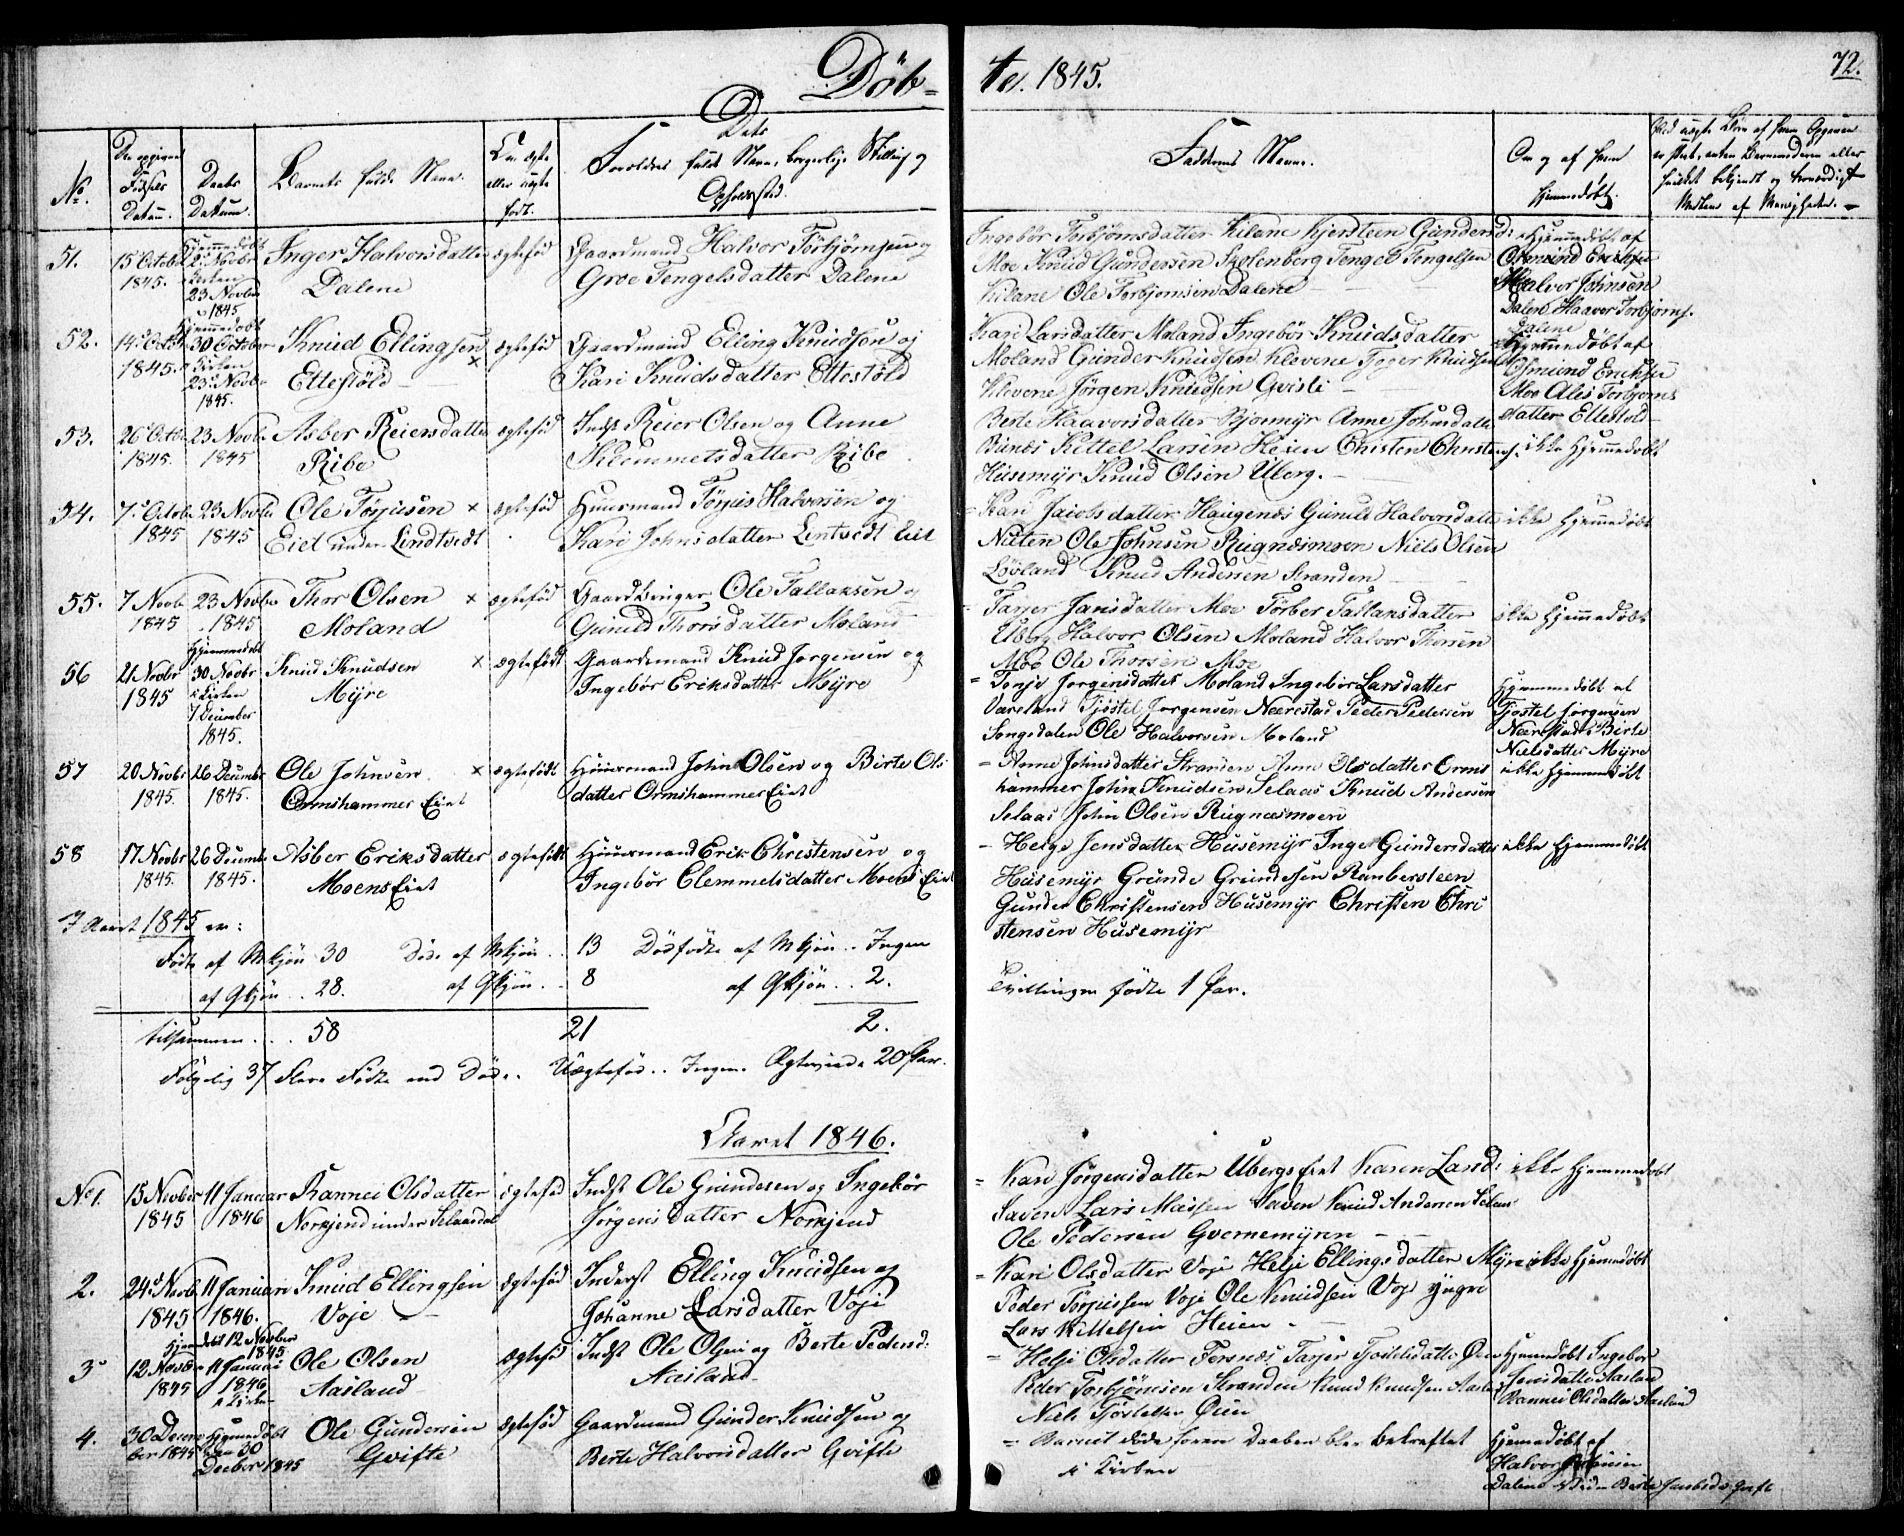 Døb=
te. 1845.
72.
Dets
No.
Den opgivne Fødsels Datum.
Daabs Datum.
Barnets fulde Navn.
Om ægte eller uægte født.
Forældres fulde Navn, borgerlige Stilling og Opholdssted.
Faddernes Navne.
Om og af hvem hjemmedøbt.
51.
15 Octobr 1845.
Hjemmedøbt 2 Novbr Kirken 23 Novbr 1845
Inger Halvorsdatter Dalene
ægtefød
Gaardmand Halvor Torbjørnsen og
Groe Tengelsdatter Dalene
Ingebør Torbjørnsdatter Kilane Kjersteen Gundersd:
Moe Knud Gundersen Skolenberg Tengel Tengelsen
Kilane Ole Torbjornsen Dalene
Hjemmedøbt af
Osmund Eriksen
Halvor Johnsen
Dalene Haavor Torbjørns.
Dalene
52.
14 Octbr 1845.
Hjemmedøbt 30 October i Kirken 23 Novbr 1845.
Knud Ellingsen × Ettestøld
ægtefød
Gaardmand Elling Knudsen og
Kari Knudsdatter Ettestøld
Kari Larsdatter Moland Ingebør Knudsdatter
Moland Gunder Knudsen Klevene Tøger Knudsen
Klevene Jørgen Knudsen Gviste
Hjemmedøbt af
Osmund Eriksen
Moe Ales Torbjørns
datter Ettestold
53.
26 Octbr 1845.
23 Novbr 1845
Asber Reiersdatter Ribe
ægtefød
Indst Reier Olsen og Anne
Klemmetsdatter Ribe
Berte Haavorsdatter Bjonmyr Anne Johnsdatter
Bånes Kettel Larsen Heien Christen Christens.
Husemyr Knud Olsen Uberg.
ikke Hjemmedøbt
54.
7 Octobr 1845
23 Novbr 1845
Ole Torjusen × Eiet under Lindtvedt
ægtefød
Huusmand Torjus Halvorsen og
Kari Johnsdatter Lentvedt Eiet
Kari Jacobsdatter Haugenes Gunild Halvorsdatter
Nuten Ole Johnsen Rugnæsmoen Niels Olsen
Løoland Knud Andersen Stranden
ikke Hjemmedøbt
55.
7 Novbr 1845
23 Novbr 1845
Thor Olsen × Moland
ægtefød
Gaardbruger Ole Tallaksen og
Gunild Thorsdatter Moland
Tarjer Jansdatter Moe Torber Tallansdatter
Uberg Halvor Olsen Moland Halvor Thorsen
Moe Ole Thorsen Moe
ikke Hjemmedøbt
56
21 Novbr 1845
Hjemmedøbt 30 Novbr i Kirken 7 December 1845.
Knud Knudsen × Myre
ægtefødt
Gaardemand Knud Jorgensen og
Ingebør Eriksdatter Myre
Tonje Jorgensdatter Moland Ingebør Larsdatter
Vareland Tjostel Jorgensen Nærestad Peder Pedersen
Songedalen Ole Halvorsen Moland
Hjemmedøbt af
Tjostel Jorgensen
Nærestad Birte
Nielsdatter Myre
57
20 Novbr 1845.
26 Decmbr 1845.
Ole Johnsen × Ormshammer Eiet
ægtefødt
Huusmand John Olsen og Birte Ols
datter Ormshammer Eiet
Anne Johnsdatter Stranden Anne Olsdatter Orms
hammer John Knudsen Selaas Knud Andersen
Selaas John Olsen Rugnæsmoen
ikke Hjemmedøbt
58
17 Novbr 1845.
26 Decmbr 1845.
Asber Eriksdatter Moens Eiet
ægtefødt
Huusmand Erik Christensen og
Ingebør Clemmetsdatter Moens Eiet
Helge Jensdatter Husemyr Inger Gundersdatter
Husemyr Grunde Grundesen Ranbersteen
Gunder Christensen Husemyr Christen Chri
stensen Husemyr
ikke Hjemmedøbt
I Aaret 1845 er:
Fødte af Mkjøn 30 Døde af Mkjøn .. 13 Dødfødte af Mkjøn .. Ingen
af Qkjøn .. 28. af Qkjøn .. 8 af Qkjøn .. 2.
Tvillinger fødte 1 Par.
tilsammen .... 58 21 2.
Følgelig 37 flere Fødte end Døde. Uægtefød .. Ingen. Ægteviede 20 Par.
Aaret 1846.
No 1.
15 Novber 1845
11 Januar 1846
Rannei Olsdatter Norkjend under Selaasdal
ægtefød
Indst Ole Gundesen og Ingebør
Jørgensdatter Norkjend
Kari Jørgensdatter Ubergs Eiet Karen Land:
Saven Lars Madsen Saven Knud Andersen Selaas
Ole Pedersen Gvernemyren
ikke Hjemmedøbt
2.
24 Novb 1845
11 Januari 1846.
Knud Ellingsen Voje
ægtefød
Inderst Elling Knudsen og
Johanne Larsdatter Voje
Kari Olsdatter Voje Helje Ellingsdatter Myre
Peder Torjussen Voje Ole Knudsen Voje yngre
Lars Kittelsen Heien
ikke Hjemmedøbt
3
12 Novbr 1845
Hjemdøbt 12 Novber 1845 11 Januar 1846 i Kirken
Ole Olsen Aasland
ægtefød
Indst Ole Olsen og Berte Pedersd:
Aasland
Helje Olsdatter Fersnæs Tarjer Tjostelsdatter Øen
Peder Torbjørnsen Stranden Knud Knudsen Aasland
Niels Tjostelsen Øien
Hjemmedøbt Ingebor
Jensdatter Aaslan
Rannei Olsdatter Aasland
4.
30 December 1845
Hjemmedøbt den 30 Decber 1845
Ole Gundersen Gvifte
ægtefød
Gaardmand Gunder Knudsen og
Berte Halvorsdatter Gvifte
Barnet døde førend Daaben blev bekræftet
i Kirken
Hjemmedøbt af
Halvor Johnsen
Dalene Viden Berte Jacobsd. Gvifte